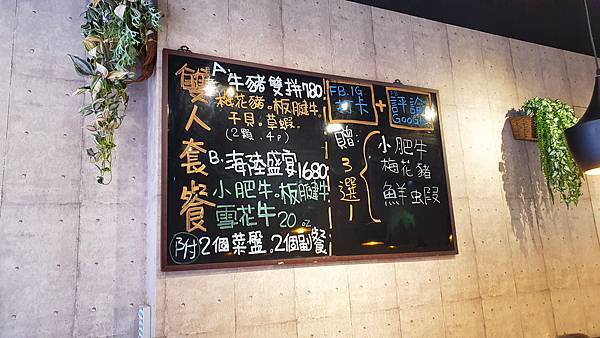 雙人套餐
A. 牛豬雙拼780
梅花豬。板腱牛。
干貝。草蝦。
(2顆.4p)
B. 海陸盛宴1680
小肥牛。板腱牛
雪花牛20oz
附 2個菜盤。2個副餐
FB.IG
打卡
+
評論
Google
贈3選1
小肥牛
梅花豬
鮮虫段